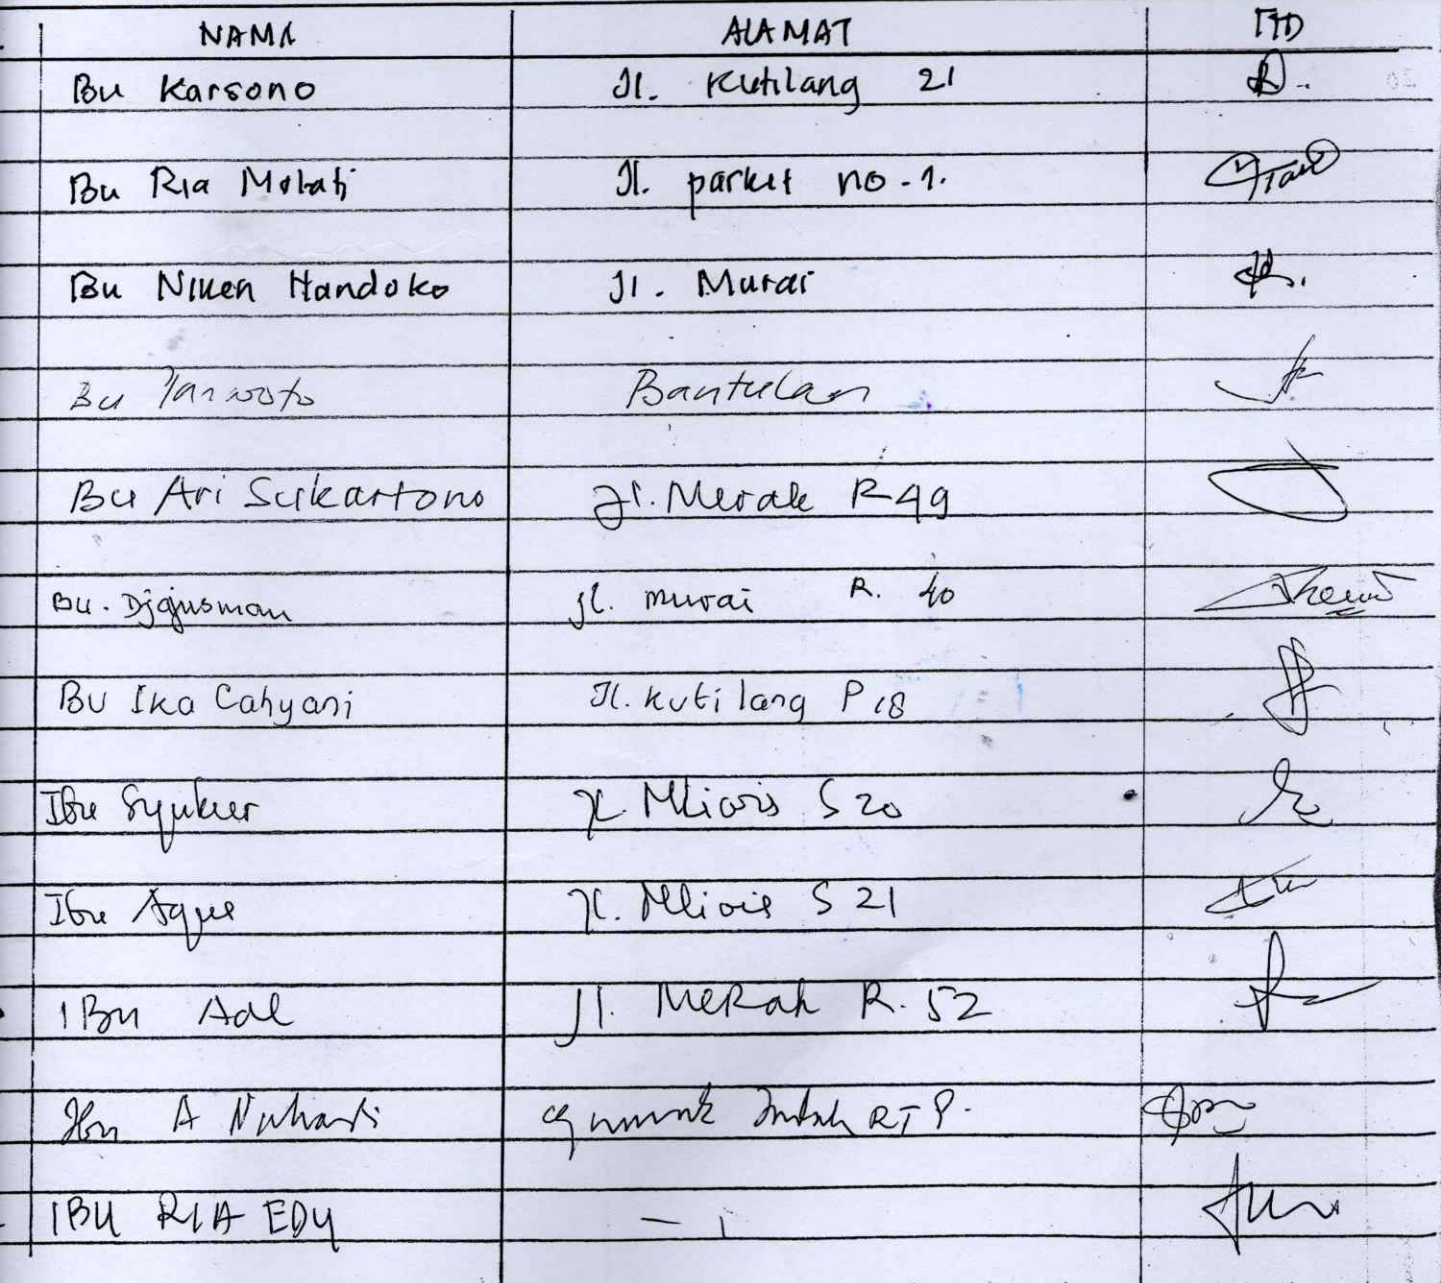 NAMA ALAMAT TTD
Bu Karsono Jl. Kutilang 21
Bu Ria Melati Jl. parkit no.1.
Bu Niken Handoko Jl. Murai
Bu Bantulan
Bu Ari Sukartono Jl. Merak R 49
Bu. Djgusman Jl. murai R. 40
Bu Ika Cahyani Jl. kutilang P 18
Ibu Syukur Jl Mliwis S 20
Ibu Jl. Mliwis S 21
IBu Ade Jl. MeRak R. 52
Ibu A RT
IBU RIA EDY –